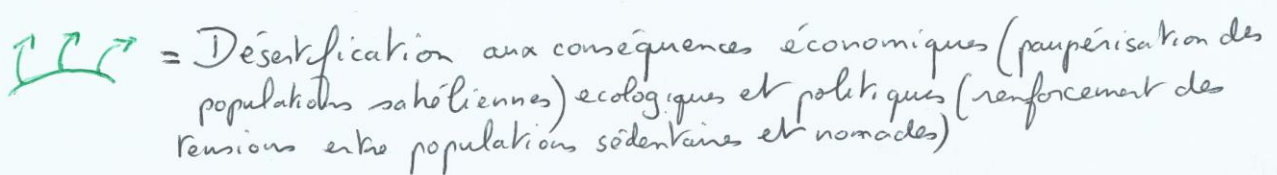 = Désertification aux conséquences économiques (paupérisation des
populations sahéliennes) ecologiques et politiques (renforcement des
tensions entre populations sédentaires et nomades)